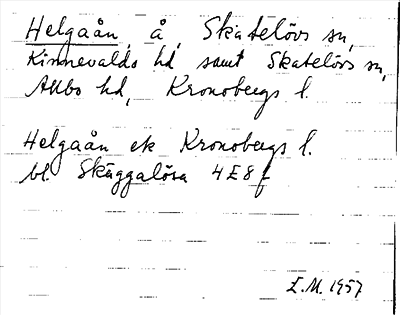 Helgaån, å, Skatelövs sn,
Kinnevalds hd samt Skatelövs sn,
Allbo hd, Kronobergs l.
Helgaån ek Kronobergs l.
bl. Skäggalösa 4E8f
E.M. 1957